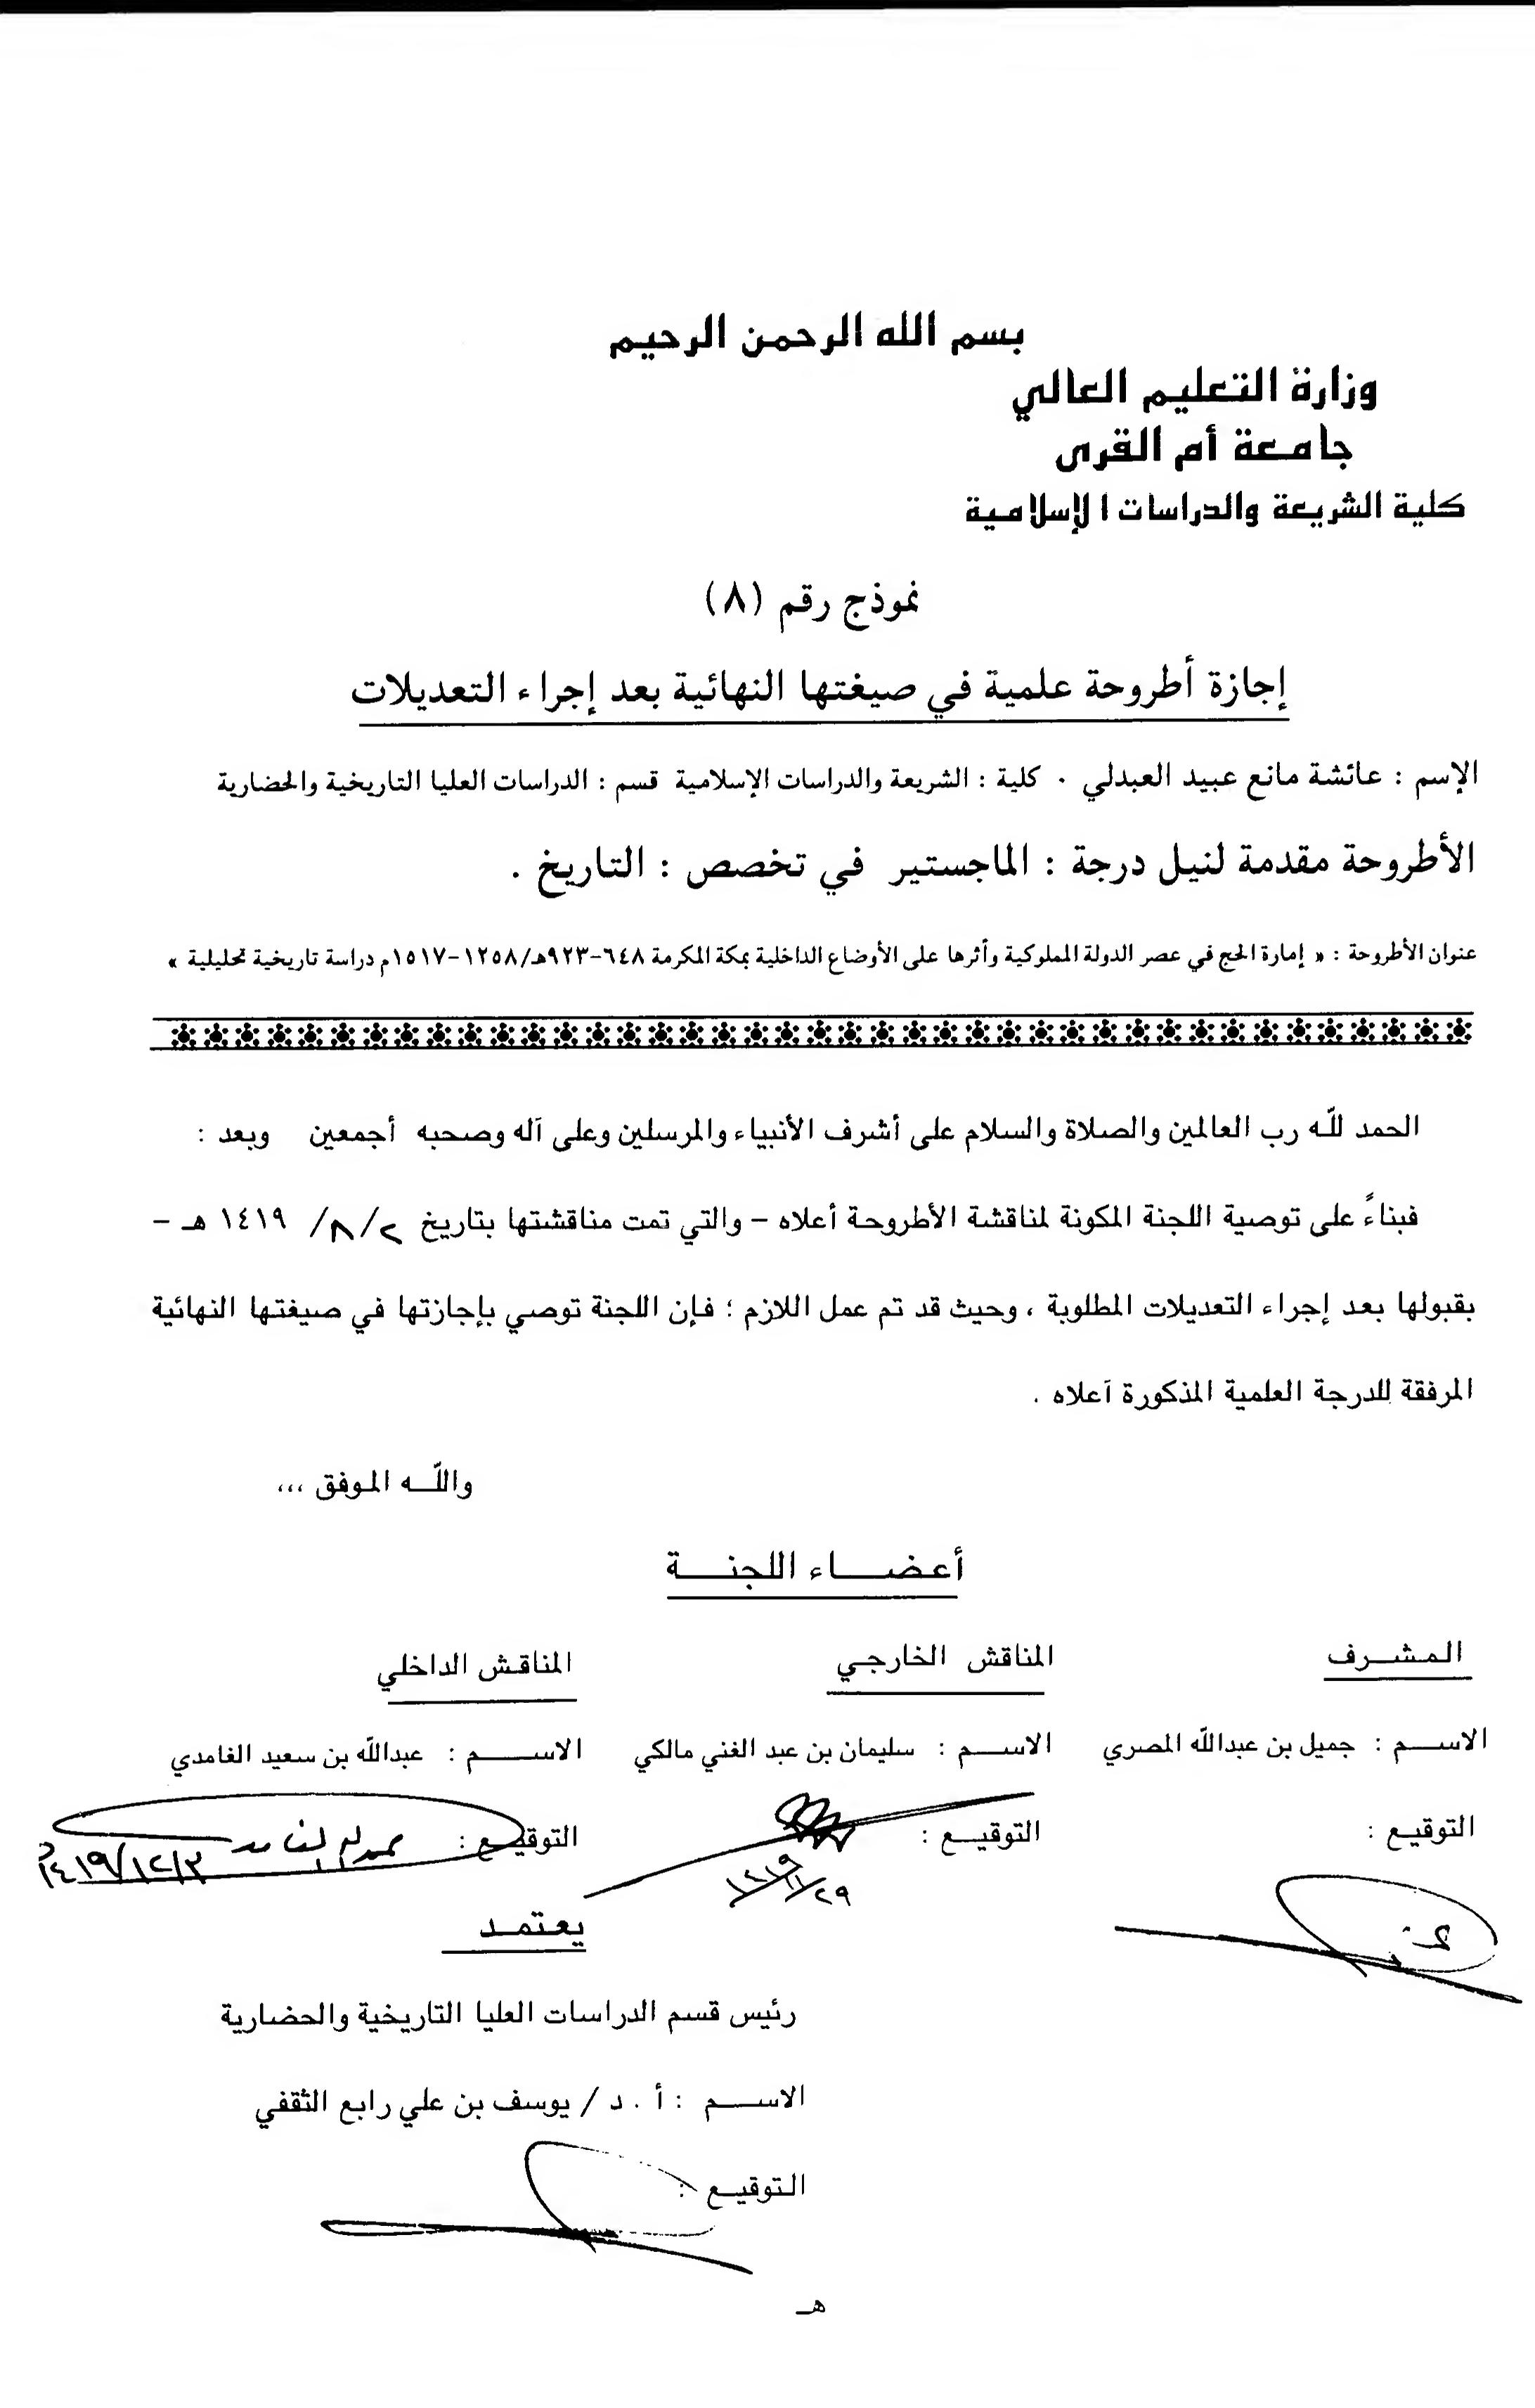 بسم الله الرحمن الرحيم
وزارة التعليم العالي
جامعة أم القرى
كلية الشريعة والدراسات الإسلامية
نموذج رقم (٨)
إجازة أطروحة علمية في صيغتها النهائية بعد إجراء التعديلات
الإسم : عائشة مانع عبيد العبدلي . كلية : الشريعة والدراسات الإسلامية قسم : الدراسات العليا التاريخية والحضارية
الأطروحة مقدمة لنيل درجة : الماجستير في تخصص : التاريخ .
عنوان الأطروحة : « إمارة الحج في عصر الدولة المملوكية وأثرها على الأوضاع الداخلية بمكة المكرمة ٦٤٨-٩٢٣هـ/١٢٥٨-١٥١٧م دراسة تاريخية تحليلية »
الحمد للّه رب العالمين والصلاة والسلام على أشرف الأنبياء والمرسلين وعلى آله وصحبه أجمعين وبعد :
فبناءً على توصية اللجنة المكونة لمناقشة الأطروحة أعلاه – والتي تمت مناقشتها بتاريخ ٢/ ٨/ ١٤١٩ هـ –
بقبولها بعد إجراء التعديلات المطلوبة ، وحيث قد تم عمل اللازم ؛ فإن اللجنة توصي بإجازتها في صيغتها النهائية
المرفقة للدرجة العلمية المذكورة أعلاه .
واللّه الموفق ،،،
أعضاء اللجنة
المشرف المناقش الخارجي المناقش الداخلي
الاسم : جميل بن عبدالله المصري الاسم : سليمان بن عبد الغني مالكي الاسم : عبدالله بن سعيد الغامدي
التوقيع : التوقيع : التوقيع :
٢٩/١١/١٤١٩ ٣/١٢/١٤١٩
يعتمد
رئيس قسم الدراسات العليا التاريخية والحضارية
الاسم : أ . د / يوسف بن علي رابع الثقفي
التوقيع :
هـ